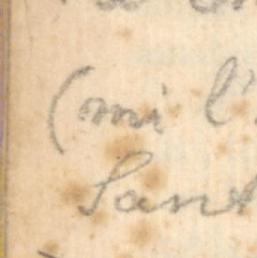 (mi l'
Sant